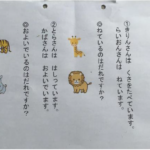 ①きりんさんは くさをたべています。
らいおんさんは ねています。
◎ねているのはだれですか？
②とらさんは はしっています。
かばさんは およいでいます。
◎およいでいるのはだれですか？